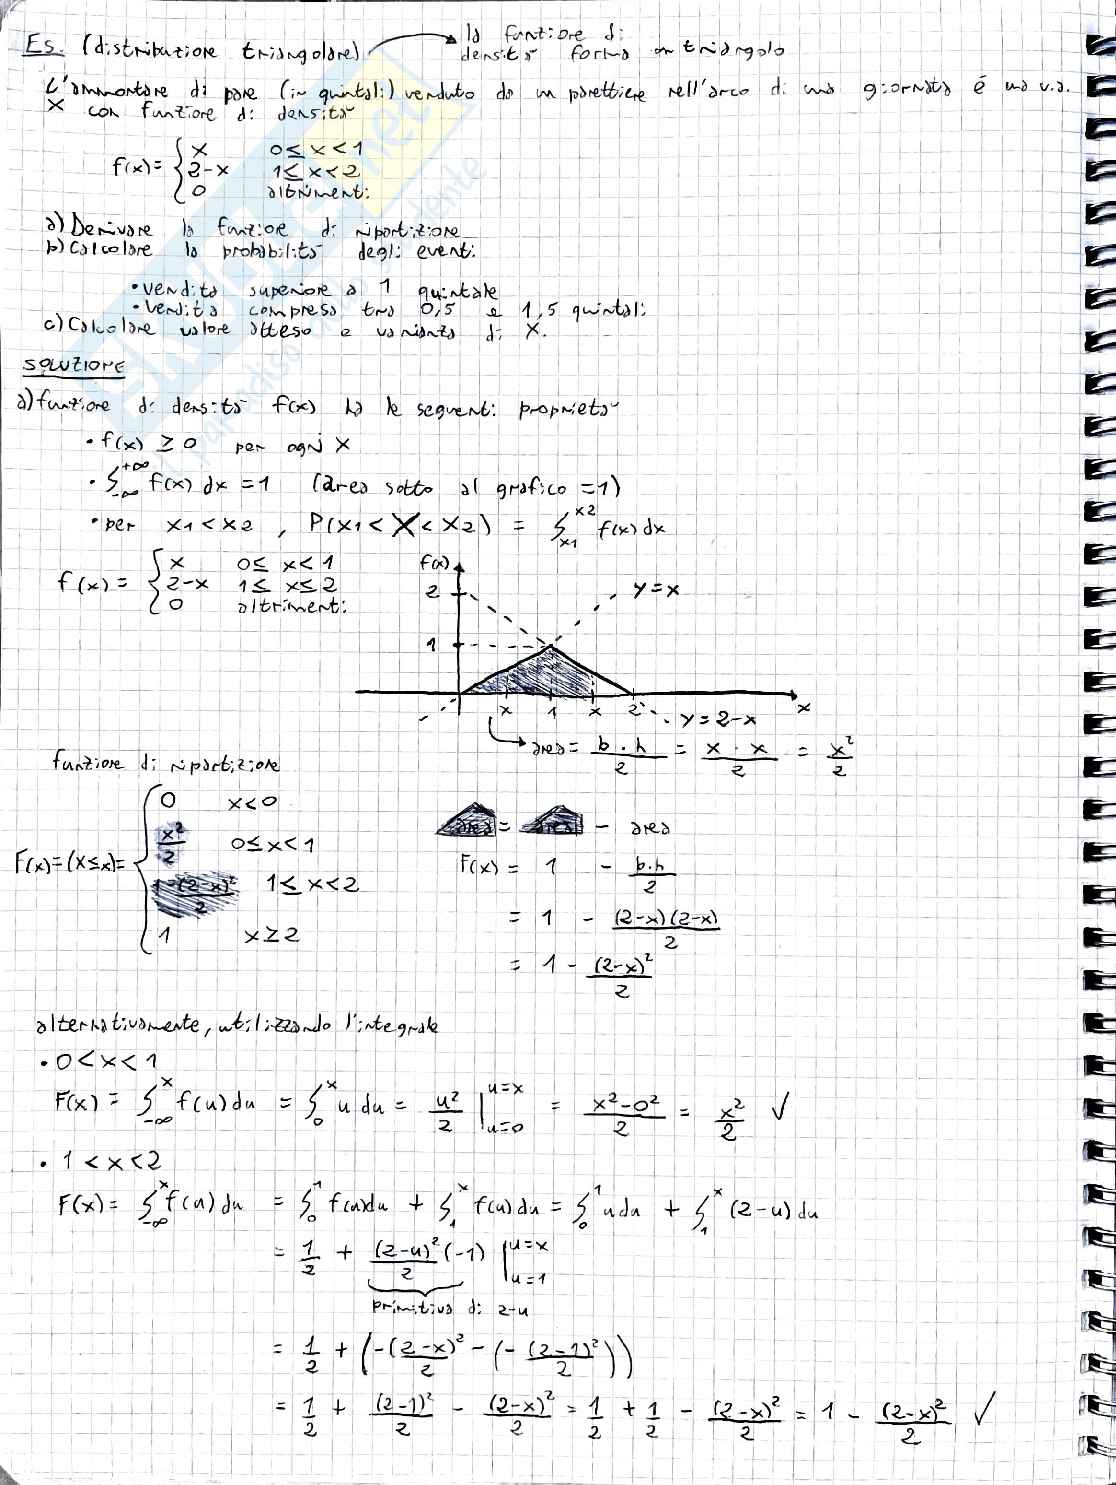 Es. (distribuzione triangolare) → la funzione di
densità forma un triangolo
L'ammontare di pane (in quintali) venduto da un panettiere nell'arco di una giornata è una v.a.
X con funzione di densità
f(x) = { x 0 ≤ x < 1
2-x 1 ≤ x < 2
0 altrimenti
a) Derivare la funzione di ripartizione
b) Calcolare la probabilità degli eventi
• vendita superiore a 1 quintale
• vendita compresa tra 0,5 e 1,5 quintali
c) Calcolare valore atteso e varianza di X.
SOLUZIONE
a) funzione di densità f(x) ha le seguenti proprietà
• f(x) ≥ 0 per ogni x
• ∫_{-∞}^{+∞} f(x) dx = 1 (area sotto al grafico = 1)
• per x1 < x2 , P(x1 < X < x2) = ∫_{x1}^{x2} f(x) dx
f(x) = { x 0 ≤ x < 1
2-x 1 ≤ x ≤ 2
0 altrimenti
f(x)
2
1
y = x
x 1 x 2 x
y = 2-x
area = b·h/2 = x·x/2 = x²/2
funzione di ripartizione
F(x) = (X ≤ x) = { 0 x < 0
x²/2 0 ≤ x < 1
1-(2-x)²/2 1 ≤ x < 2
1 x ≥ 2
area = area - area
F(x) = 1 - b·h/2
= 1 - (2-x)(2-x)/2
= 1 - (2-x)²/2
alternativamente, utilizzando l'integrale
• 0 < x < 1
F(x) = ∫_{-∞}^{x} f(u) du = ∫_{0}^{x} u du = u²/2 |_{u=0}^{u=x} = (x²-0²)/2 = x²/2 ✓
• 1 < x < 2
F(x) = ∫_{-∞}^{x} f(u) du = ∫_{0}^{1} f(u) du + ∫_{1}^{x} f(u) du = ∫_{0}^{1} u du + ∫_{1}^{x} (2-u) du
= 1/2 + (2-u)²/2 (-1) |_{u=1}^{u=x}
primitiva di 2-u
= 1/2 + (-(2-x)²/2 - (-(2-1)²/2))
= 1/2 + (2-1)²/2 - (2-x)²/2 = 1/2 + 1/2 - (2-x)²/2 = 1 - (2-x)²/2 ✓